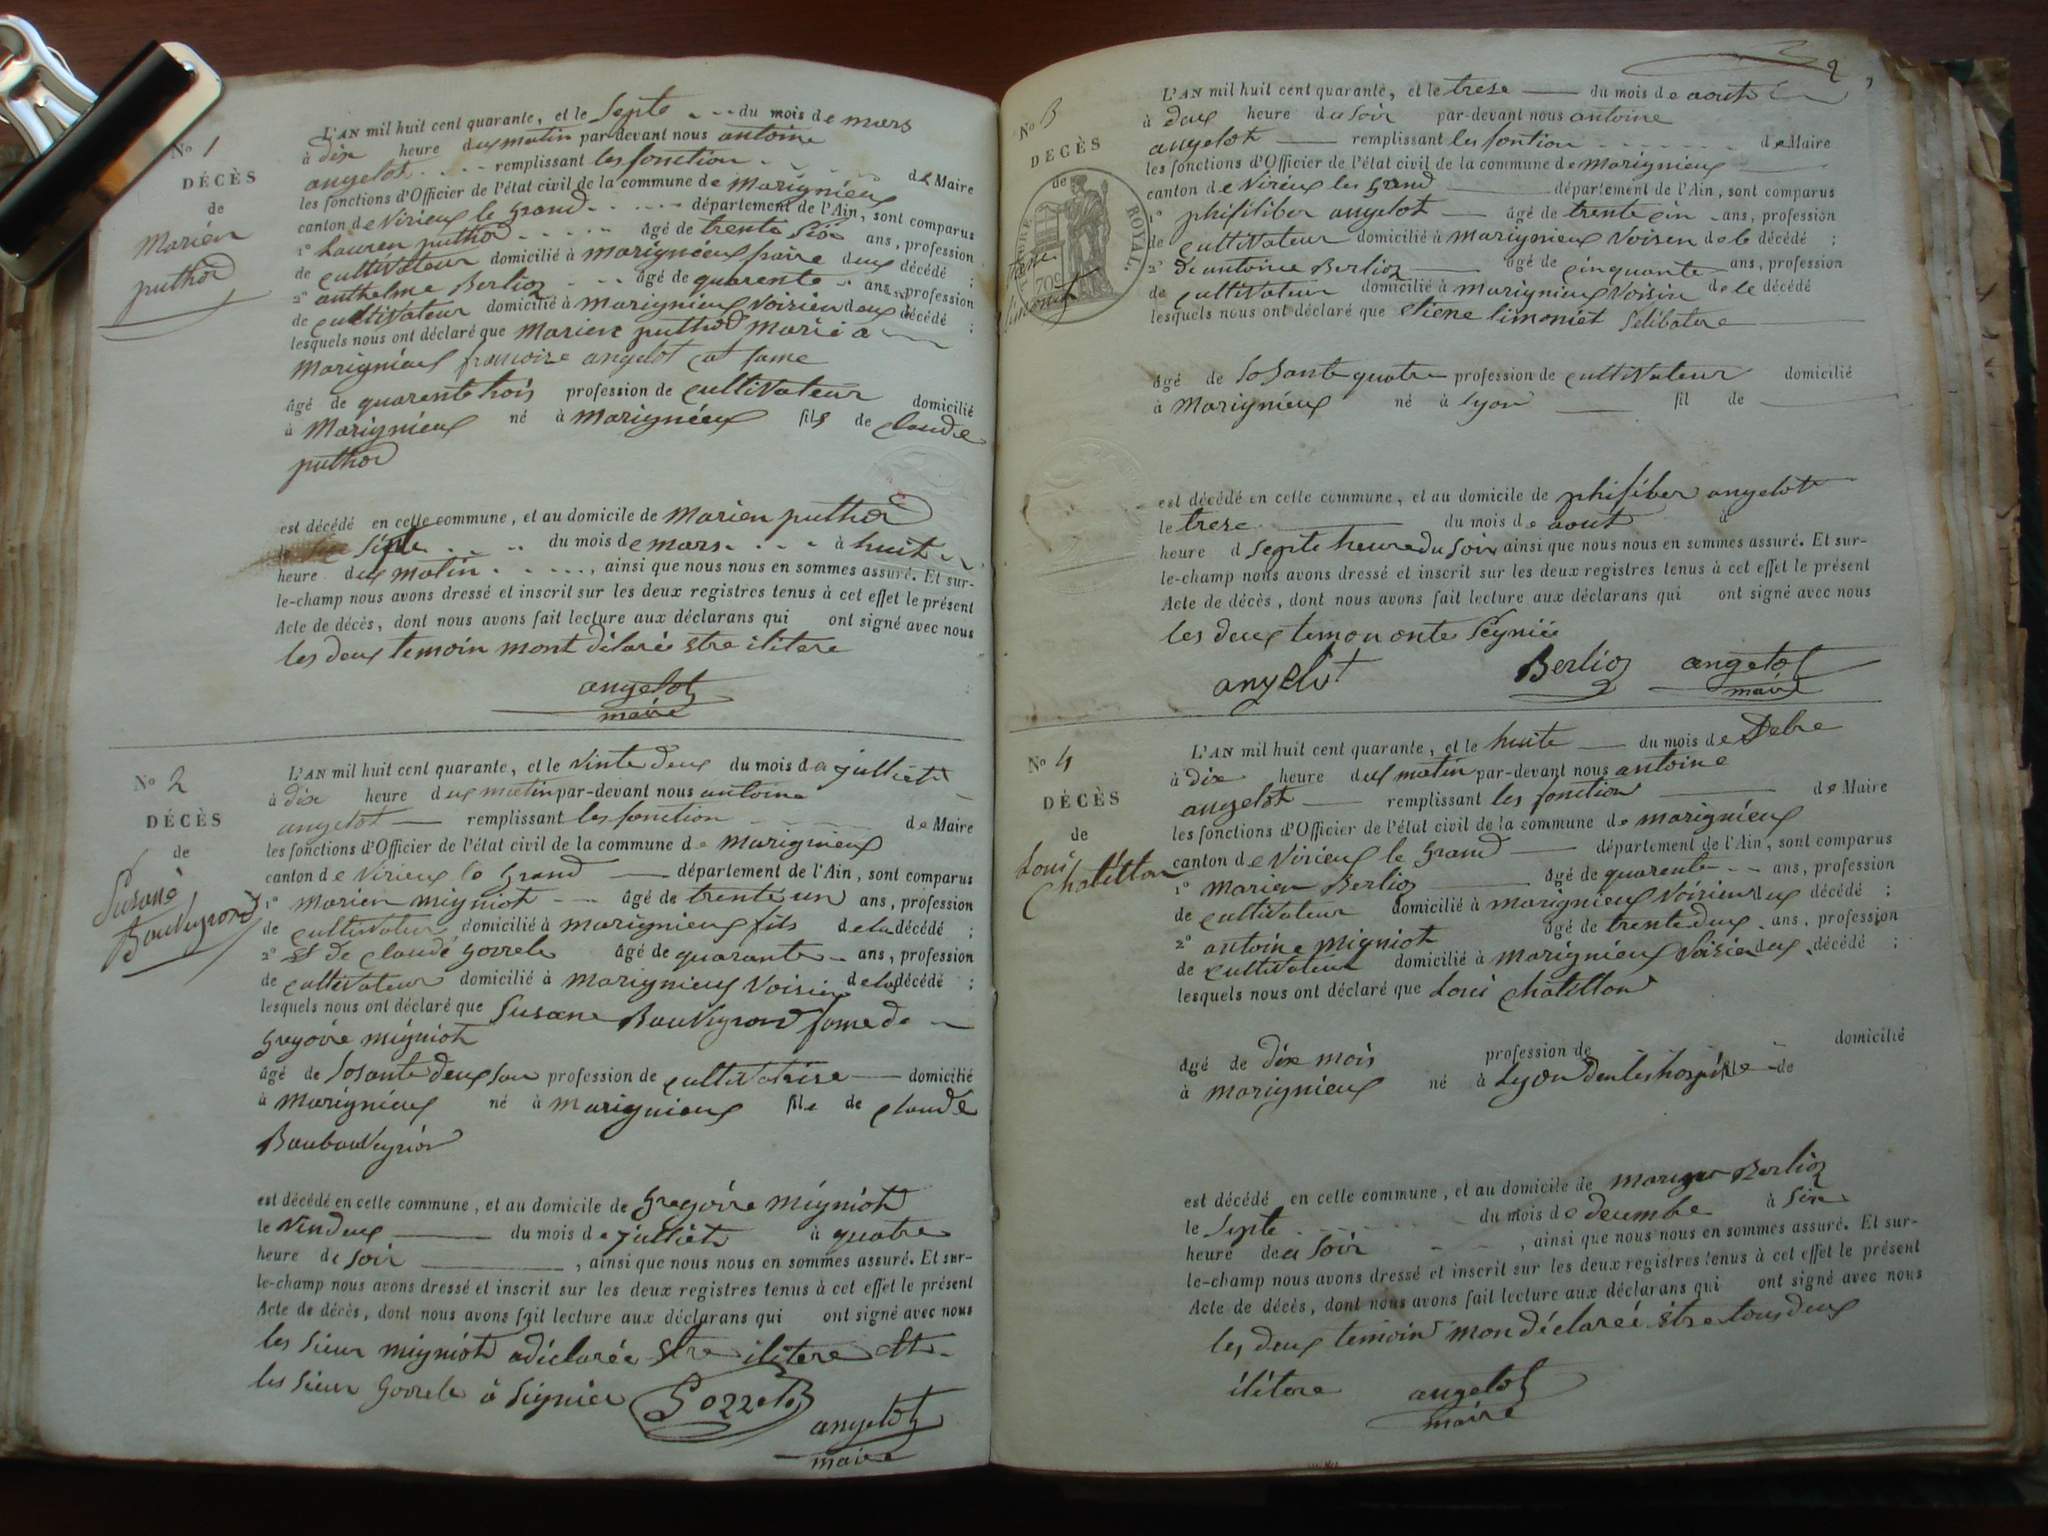 No 1
DÉCÈS
de
Marien
puthod
L'AN mil huit cent quarante, et le Septe du mois de mars
à dix heure dux matin par-devant nous antoine
angelot remplissant les fonction de Maire
les fonctions d'Officier de l'état civil de la commune de Marignieux
canton de Virieux le Grand département de l'Ain, sont comparus
1o Lauren puthod âgé de trente Six ans, profession
de cultivateur domicilié à marignieux fraire dux décédé ;
2o anthelme Berlioz âgé de quarente ans, profession
de cultivateur domicilié à marignieux Voisien dux décédé ;
lesquels nous ont déclaré que Marien puthod marié a
Marignieux francoise angelot cat fame
âgé de quarente trois profession de cultivateur domicilié
à Marignieux né à Marignieux fils de claude
puthod
est décédé en cette commune, et au domicile de Marien puthod
le Sipte du mois de mars à huit
heure dux matin, ainsi que nous nous en sommes assuré. Et sur-
le-champ nous avons dressé et inscrit sur les deux registres tenus à cet effet le présent
Acte de décès, dont nous avons fait lecture aux déclarans qui ont signé avec nous
les deux temoin mont délarée stre ilitere
angelot
maire
No 2
DÉCÈS
de
Susane
Bouveyrond
L'AN mil huit cent quarante, et le vinte deux du mois de julliet
à dix heure dux matin par-devant nous antoine
angelot remplissant les fonction de Maire
les fonctions d'Officier de l'état civil de la commune de Marignieux
canton de Virieux le Grand département de l'Ain, sont comparus
1o Marien migniot âgé de trente un ans, profession
de cultivateur domicilié à marignieux fils de la décédé ;
2o de claude Gorrele âgé de quarante ans, profession
de cultivateur domicilié à marignieux Voisien de la décédé ;
lesquels nous ont déclaré que Susane Bouveyrond fame de
Gregoire migniot
âgé de Sosante deux profession de cultivatrise domicilié
à Marignieux né à Marignieux file de claude
Boubouveyron
est décédé en cette commune, et au domicile de Gregoire Migniot
le Vindeux du mois de julliet à quatre
heure de soir, ainsi que nous nous en sommes assuré. Et sur-
le-champ nous avons dressé et inscrit sur les deux registres tenus à cet effet le présent
Acte de décès, dont nous avons fait lecture aux déclarans qui ont signé avec nous
les Sieur migniot a déclarée stre ilitere Et
les Sieur Gorrele à Signier
angelot
maire
2
No 3
DÉCÈS
de
TIMBRE ROYAL.
70c
limoniet
L'AN mil huit cent quarante, et le trese du mois de aout
à deux heure du soir par-devant nous antoine
angelot remplissant les fontion de Maire
les fonctions d'Officier de l'état civil de la commune de Marignieux
canton de Virieux les Grand département de l'Ain, sont comparus
1o phisiliber angelot âgé de trente cin ans, profession
de cultivateur domicilié à Marignieux Voisen de le décédé ;
2o de antoine Berlioz âgé de cinquante ans, profession
de cultivateur domicilié à marignieux Voisin de le décédé
lesquels nous ont déclaré que Etiene limoniet Selibatere
âgé de Sosante quatre profession de cultivateur domicilié
à Marignieux né à lyon fil de
est décédé en cette commune, et au domicile de phisiber angelot
le trese du mois de aout à
heure d Septe heure du soir ainsi que nous nous en sommes assuré. Et sur-
le-champ nous avons dressé et inscrit sur les deux registres tenus à cet effet le présent
Acte de décès, dont nous avons fait lecture aux déclarans qui ont signé avec nous
les deux temon onte Seyniée
angelot Berlioz angelot
maire
No 4
DÉCÈS
de
Loui
Chatillon
L'AN mil huit cent quarante, et le huite du mois de Debre
à dix heure dux matin par-devant nous antoine
angelot remplissant les fonction de Maire
les fonctions d'Officier de l'état civil de la commune de marignieux
canton de Virieux le Grand département de l'Ain, sont comparus
1o Marien Berlioz âgé de quarente ans, profession
de cultivateur domicilié à marignieux Voisien dux décédé ;
2o antoine migniot âgé de trente deux ans, profession
de cultivateur domicilié à marignieux Voisien dux décédé ;
lesquels nous ont déclaré que Loui Chatillon
âgé de dix mois profession de domicilié
à marignieux né à Lyon den les hospisse de
est décédé en cette commune, et au domicile de Berlioz
le Septe du mois de decembe à Six
heure de soir, ainsi que nous nous en sommes assuré. Et sur-
le-champ nous avons dressé et inscrit sur les deux registres tenus à cet effet le présent
Acte de décès, dont nous avons fait lecture aux déclarans qui ont signé avec nous
les deux temoin mon déclareé stre tous deux
ilitere angelot
maire